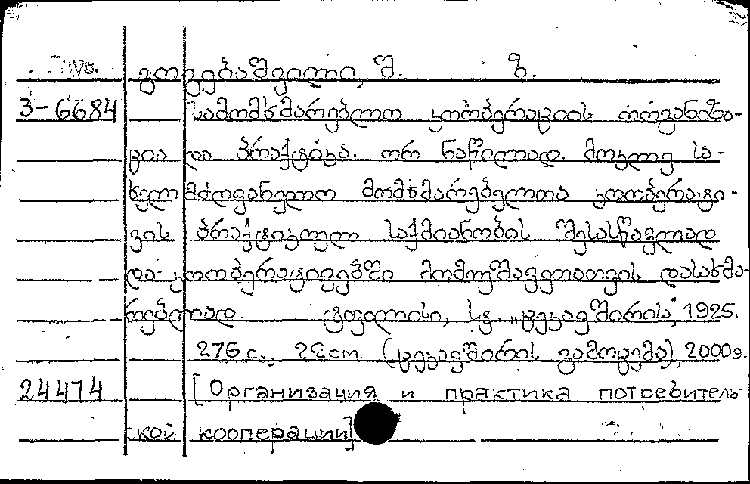 გოგებაშვილი, შ. ზ.
3-6684 სამომხმარებლო კოოპერაციის ორგანიზა-
ცია და პრაქტიკა. ორ ნაწილად. მოკლე სა-
ხელმძღვანელო მომხმარებელთა კოოპერატი-
ვის პრაქტიკულ საქმიანობის შესასწავლად
და კოოპერატივებში მომუშავეთათვის დასახმა-
რებლად. ტფილისი, სტ. „ცეკავშირის", 1925.
276 c., 22 cm (ცეკავშირის გამოცემა), 2000 э.
24474 [Организация и практика потребитель-
ской кооперации]